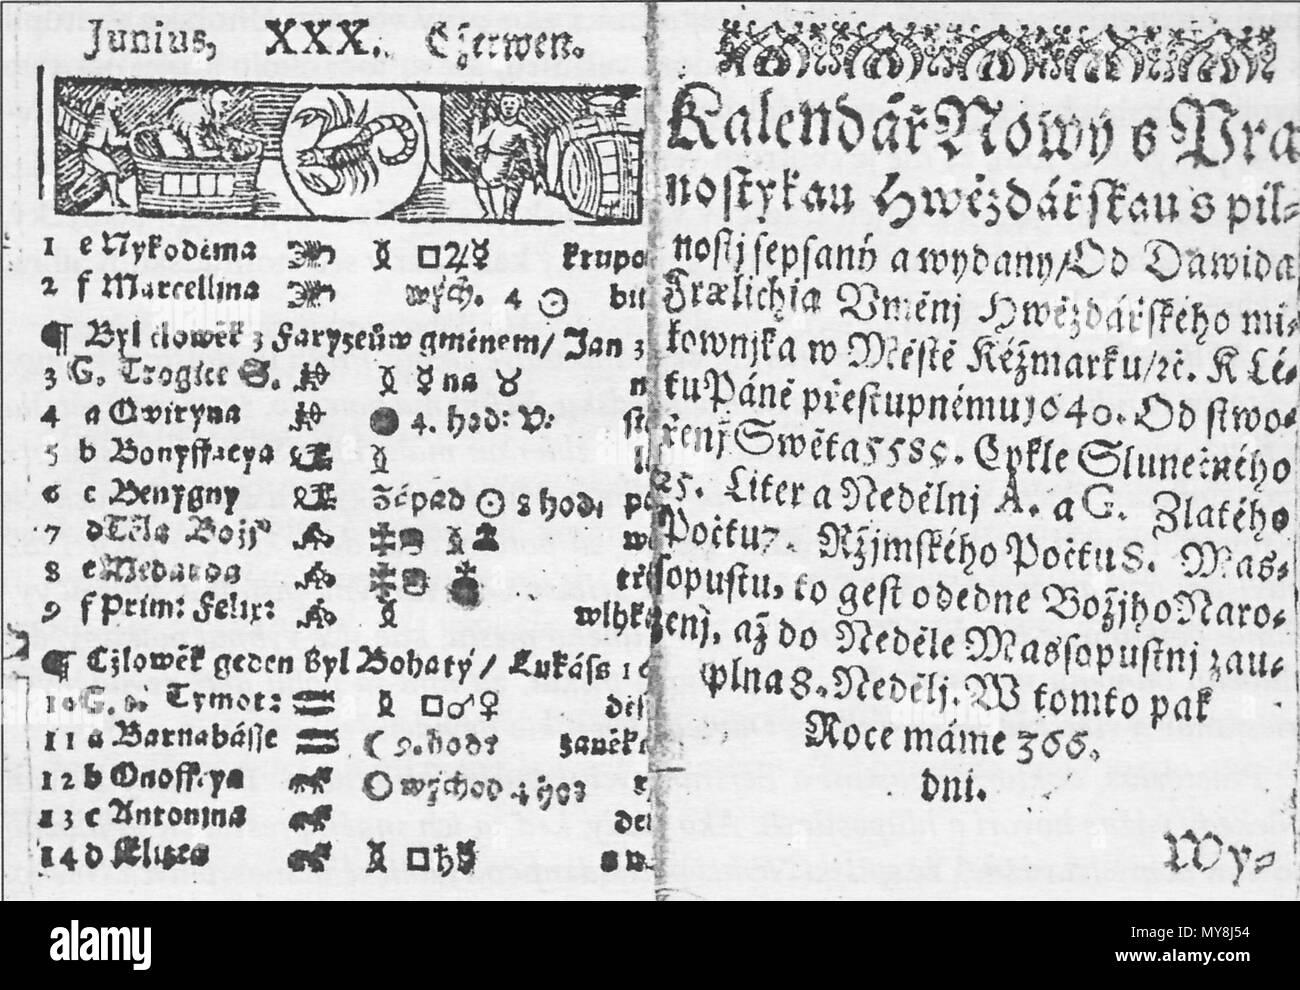 Junius, XXX. Czerwen.
1 e Nykodéma □♃☿ krupo
2 f Marcellina wých. 4 ☉
¶ Byl clowék z Faryzeůw gménem/ Jan 3
3 G. Trogice S. ☿ na ♉
4 a Qwiryna 4. hod:
5 b Bonyffacya
6 c Benygny Západ ☉ 8 hod,
7 d Těla Božj°
8 e Medarda
9 f Prim: Felix: wlhko
¶ Czlowěk geden byl Bohatý/ Lukáss 16
10 G. Tymot: □♂♀
11 a Barnabásse ☾ 9. hod:
12 b Onoffrya wýchod 4 hod
13 c Antonjna
14 d Elizea □♄☿
Kalendář Nowý s Pra
nostykau Hwězdářskau s pil-
nostj sepsaný a wydany/ Od Dawida
Frœlichia Vměnj Hwězdářskeho mi-
lownjka w Městě Kěžmarku/ꝛc. K Lé-
tu Páně přestupnému 1640. Od stwo-
řenj Swěta 5585. Cykle Slunečného
25. Litera Nedělnj A. a G. Zlatého
Počtu 7. Ržjmského Počtu 8. Mas-
sopustu, to gest ode dne Božjho Naro-
zenj, až do Neděle Massopustnj zau-
plna 8. Nedělj. W tomto pak
Roce máme 366.
dni.
Wy-
alamy
Image ID: MY8J54
www.alamy.com